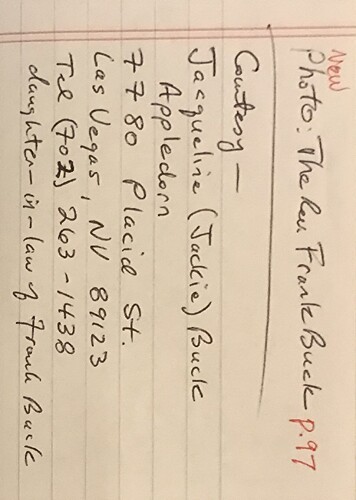 New
Photo: The Rev. Frank Buck p.97
Courtesy —
Jacqueline (Jackie) Buck
Appledorn
7780 Placid St.
Las Vegas, NV 89123
Tel (702) 263-1438
daughter-in-law of Frank Buck